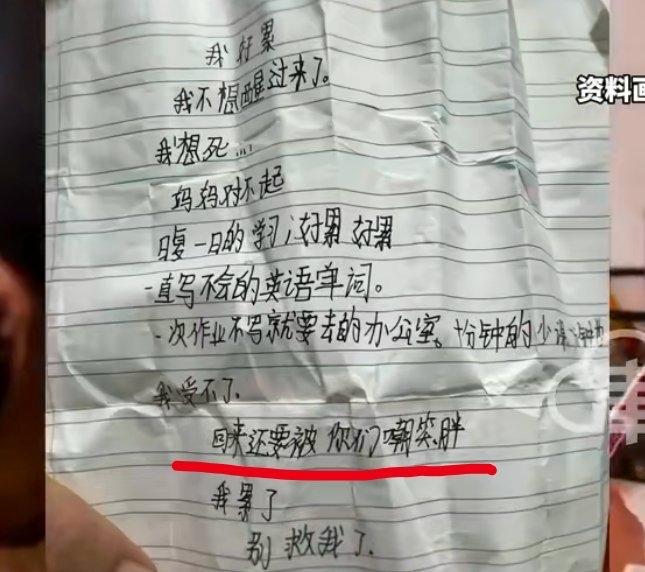 资料画
我好累
我不想醒过来了。
我想死...
妈妈对不起
日复一日的学习,好累 好累
一直写不会的英语单词。
一次作业不写就要去的办公室。十分钟的少
我受不了.
回来还要被你们嘲笑胖
我累了
别救我了.